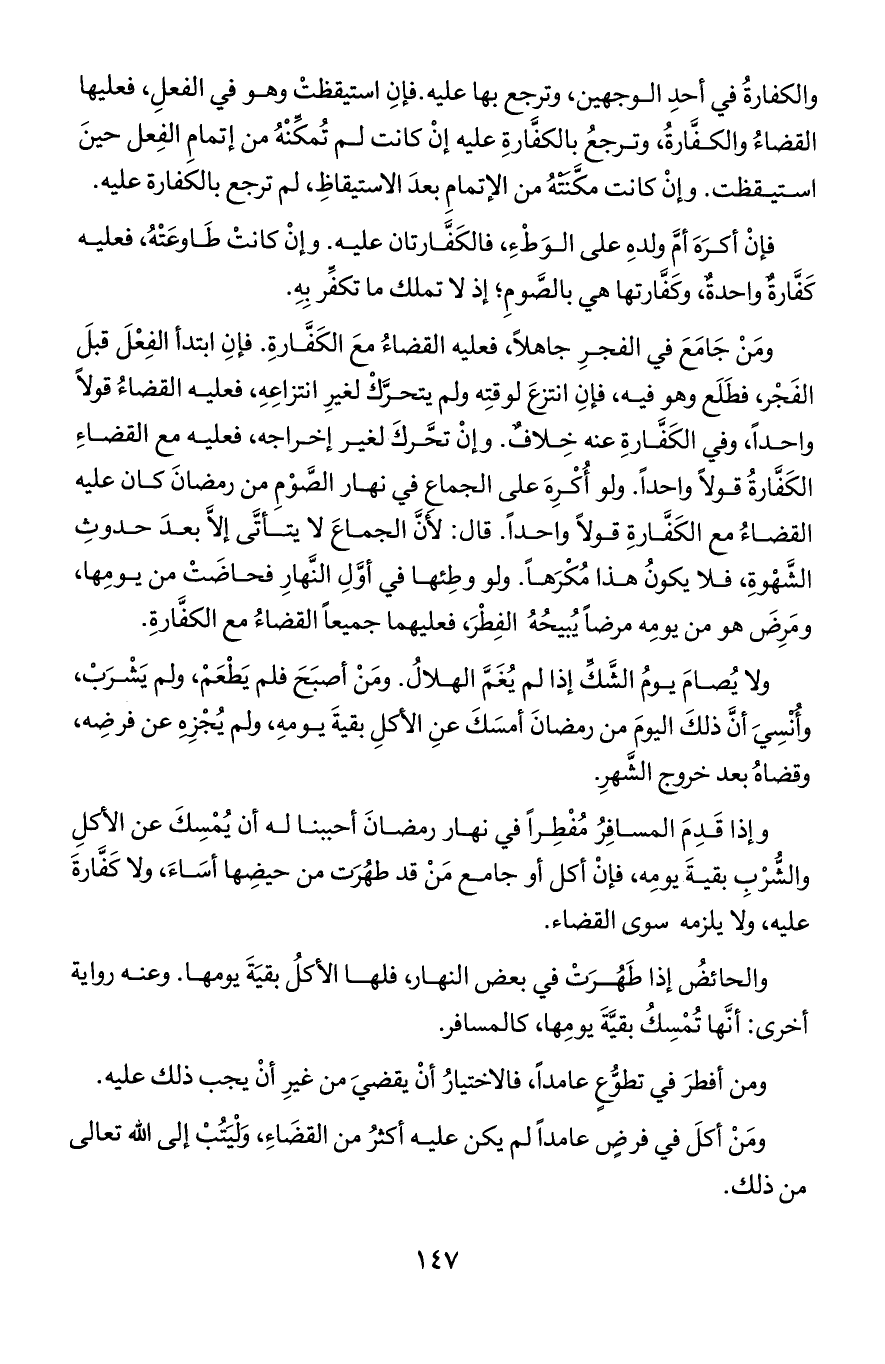 والكفارةُ في أحدِ الـوجهين، وترجع بها عليه.فإنِ استيقظتْ وهـو في الفعلِ، فعليها
القضاءُ والكـفَّارةُ، وتـرجعُ بالكفَّارةِ عليه إنْ كانت لـم تُمكِّنْهُ من إتمامِ الفِعل حينَ
استيـقظت. وإنْ كانت مكَّنَتْهُ من الإتمامِ بعدَ الاستيقاظِ، لم ترجع بالكفارة عليه.
فإنْ أكـرَهَ أمَّ ولدهِ على الـوَطْءِ، فالكَفَّـارتان عليـه. وإنْ كانتْ طَـاوعَتْهُ، فعليـه
كَفَّارةٌ واحدةٌ، وكَفَّارتها هي بالصَّومِ؛ إذ لا تملك ما تكفِّر بِهِ.
ومَنْ جَامَعَ في الفجـرِ جاهلاً، فعليه القضاءُ معَ الكَفَّـارةِ. فإنِ ابتدأ الفِعْلَ قبلَ
الفَجْر، فطَلَع وهو فيـه، فإنِ انتزعَ لوقتِه ولم يتحـرَّكْ لغيرِ انتزاعِهِ، فعليـه القضاءُ قولاً
واحـداً، وفي الكَفَّـارةِ عنه خِـلافٌ. وإنْ تحَّـركَ لغيـر إخـراجه، فعليـه مع القضـاءِ
الكَفَّارةُ قـولاً واحداً. ولو أُكْـرِهَ على الجماعِ في نهـار الصَّوْمِ من رمضانَ كـان عليه
القضـاءُ مع الكَفَّـارةِ قـولاً واحـداً. قال: لأنَّ الجمـاعَ لا يتـأتَّى إلاَّ بعـدَ حـدوثِ
الشَّهْوةِ، فـلا يكونُ هـذا مُكْرَهـاً. ولو وطِئهـا في أوَّلِ النَّهارِ فحـاضَتْ من يـومِها،
ومَرِضَ هو من يومِه مرضاً يُبيحُهُ الفِطْرَ، فعليهما جميعاً القضاءُ مع الكفَّارةِ.
ولا يُصـامَ يـومُ الشَّكِّ إذا لم يُغَمَّ الهـلالُ. ومَنْ أصبَحَ فلم يَطْعَمْ، ولم يَشْـرَبْ،
وأُنْسِيَ أنَّ ذلكَ اليومَ من رمضانَ أمسَكَ عنِ الأكلِ بقيةَ يـومهِ، ولم يُجْزِهِ عن فرضِه،
وقضاهُ بعد خروج الشَّهرِ.
وإذا قَـدِمَ المسـافِرُ مُفْطِـراً في نهـار رمضـانَ أحببنـا لـه أن يُمْسِكَ عن الأكلِ
والشُّرْبِ بقيـةَ يومِه، فإنْ أكل أو جامـع مَنْ قد طهُرَت من حيضِها أسَـاءَ، ولا كَفَّارةَ
عليه، ولا يلزمه سوى القضاء.
والحائضُ إذا طَهُـرَتْ في بعض النهـار، فلهـا الأكلُ بقيَةَ يومهـا. وعنـه رواية
أخرى: أنَّها تُمْسِكُ بقيَّةَ يومِها، كالمسافر.
ومن أفطرَ في تطوُّعٍ عامداً، فالاختيارُ أنْ يقضيَ من غيرِ أنْ يجب ذلك عليه.
ومَنْ أكلَ في فرضٍ عامداً لم يكن عليـه أكثرُ من القضَاءِ، وَلْيَتُبْ إلى الله تعالى
من ذلك.
١٤٧